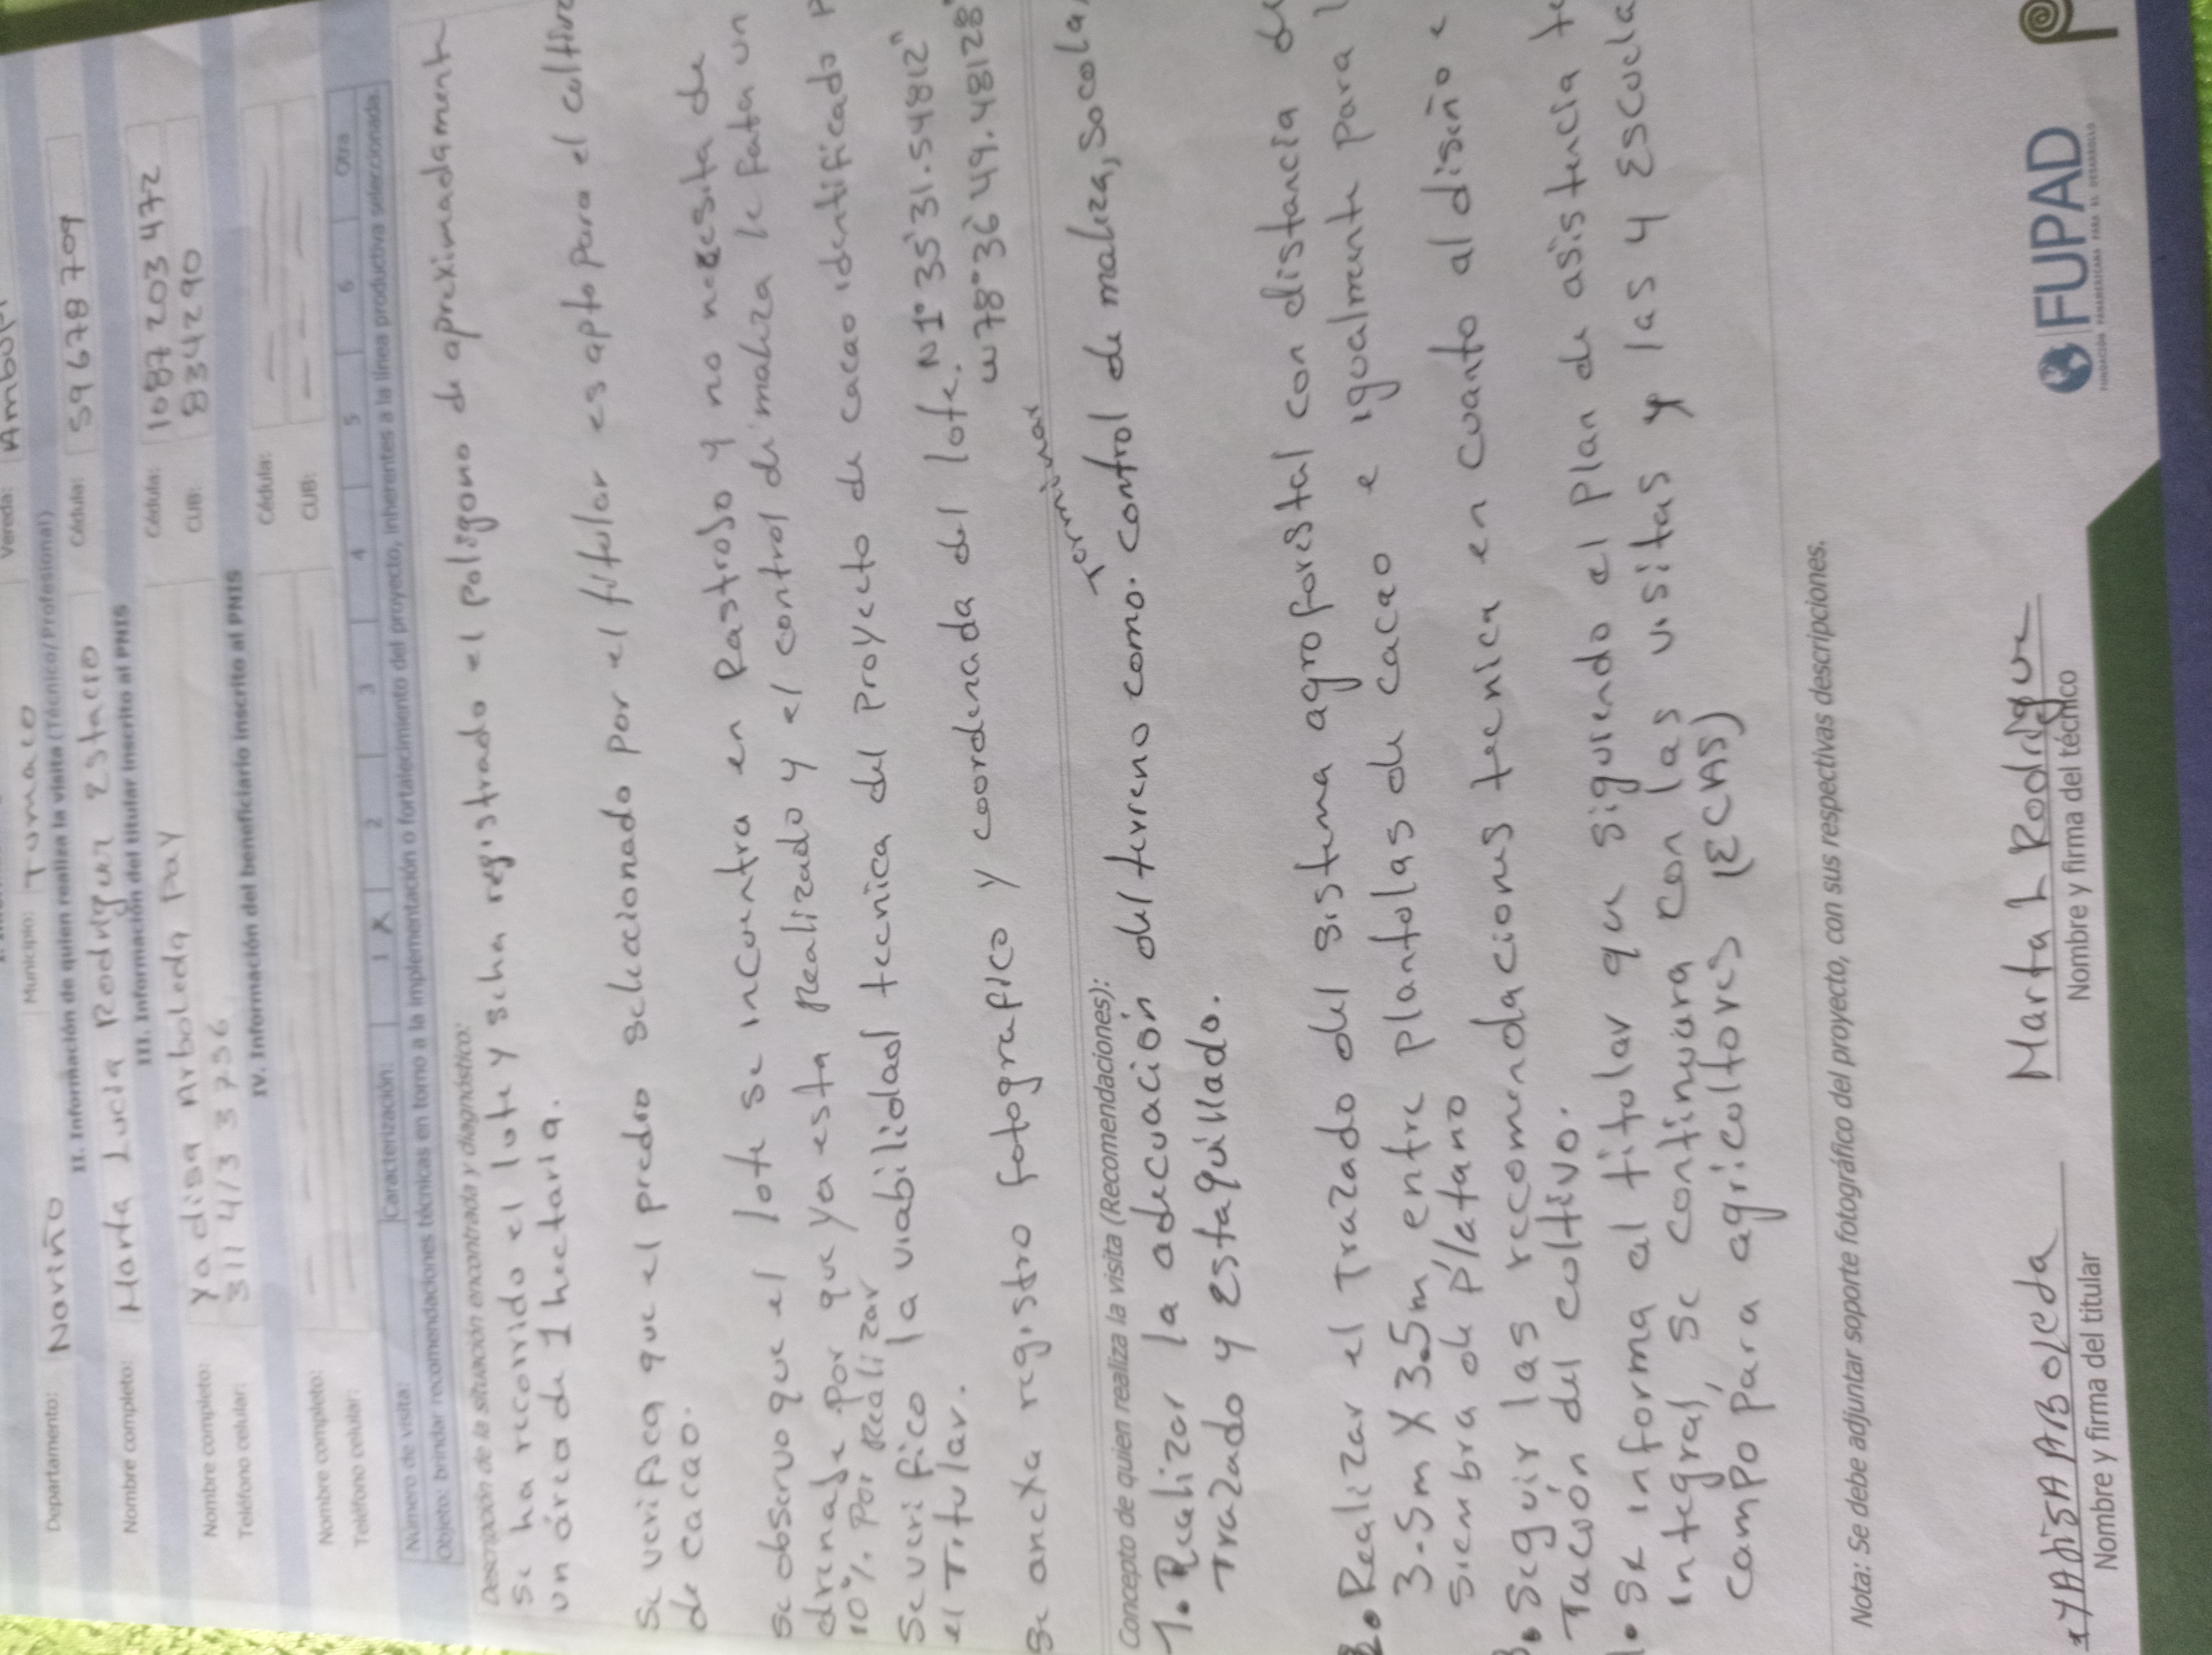 Departamento: Nariño Municipio: Tumaco Vereda:
II. Información de quien realiza la visita (Técnico/Profesional)
Nombre completo: Marta Lucia Rodriguez Estacio Cédula: 59678709
III. Información del titular inscrito al PNIS
Nombre completo: Yadisa Arboleda Pay Cédula: 1087203472
Teléfono celular: 311 413 3756 CUB: 834290
IV. Información del beneficiario inscrito al PNIS
Nombre completo: Cédula:
Teléfono celular: CUB:
Número de visita: Caracterización: 1 X 2 3 4 5 6 Otra
Objeto: brindar recomendaciones técnicas en torno a la implementación o fortalecimiento del proyecto, inherentes a la línea productiva seleccionada.
Descripción de la situación encontrada y diagnóstico:
Se ha recorrido el lote y scha registrado el poligono de aproximadament
un área de 1 hectaria.
Se verifica que el predio seleccionado por el titular es apto para el
de cacao.
Se observo que el lote se incuentra en Rastrojo y no necesita de
drenaje por que ya esta Realizado y el control di maliza le fata un
10%. Por Realizar
Se verifico la viabilidad tecnica del Proyecto de cacao identificado
el Titular.
N1°35'31.54812"
Se anexa registro fotografico y coordenada del lote. W78°36'49.48128"
Concepto de quien realiza la visita (Recomendaciones):
Terminar
1. Realizar la adecuación del terreno como. control de maliza, Socola,
Trazado y estaquillado.
2. Realizar el Trazado del sistema agroforestal con distancia de
3.5m X 3.5m entre plantolas de cacao e igualmente para
siembra de Platano
Seguir las recomendaciones tecnica en cuanto al diseño e
Tación del coltivo.
Se informa al titolar que siguiendo el Plan de asistencia
Integral, se continuara con las visitas y las 4 Escuela
campo para agricoltores (ECAS)
Nota: Se debe adjuntar soporte fotográfico del proyecto, con sus respectivas descripciones.
x YAdiSA ARBOleDA Marta L Rodrigue
Nombre y firma del titular Nombre y firma del técnico
FUPAD
FUNDACIÓN PANAMERICANA PARA EL DESARROLLO